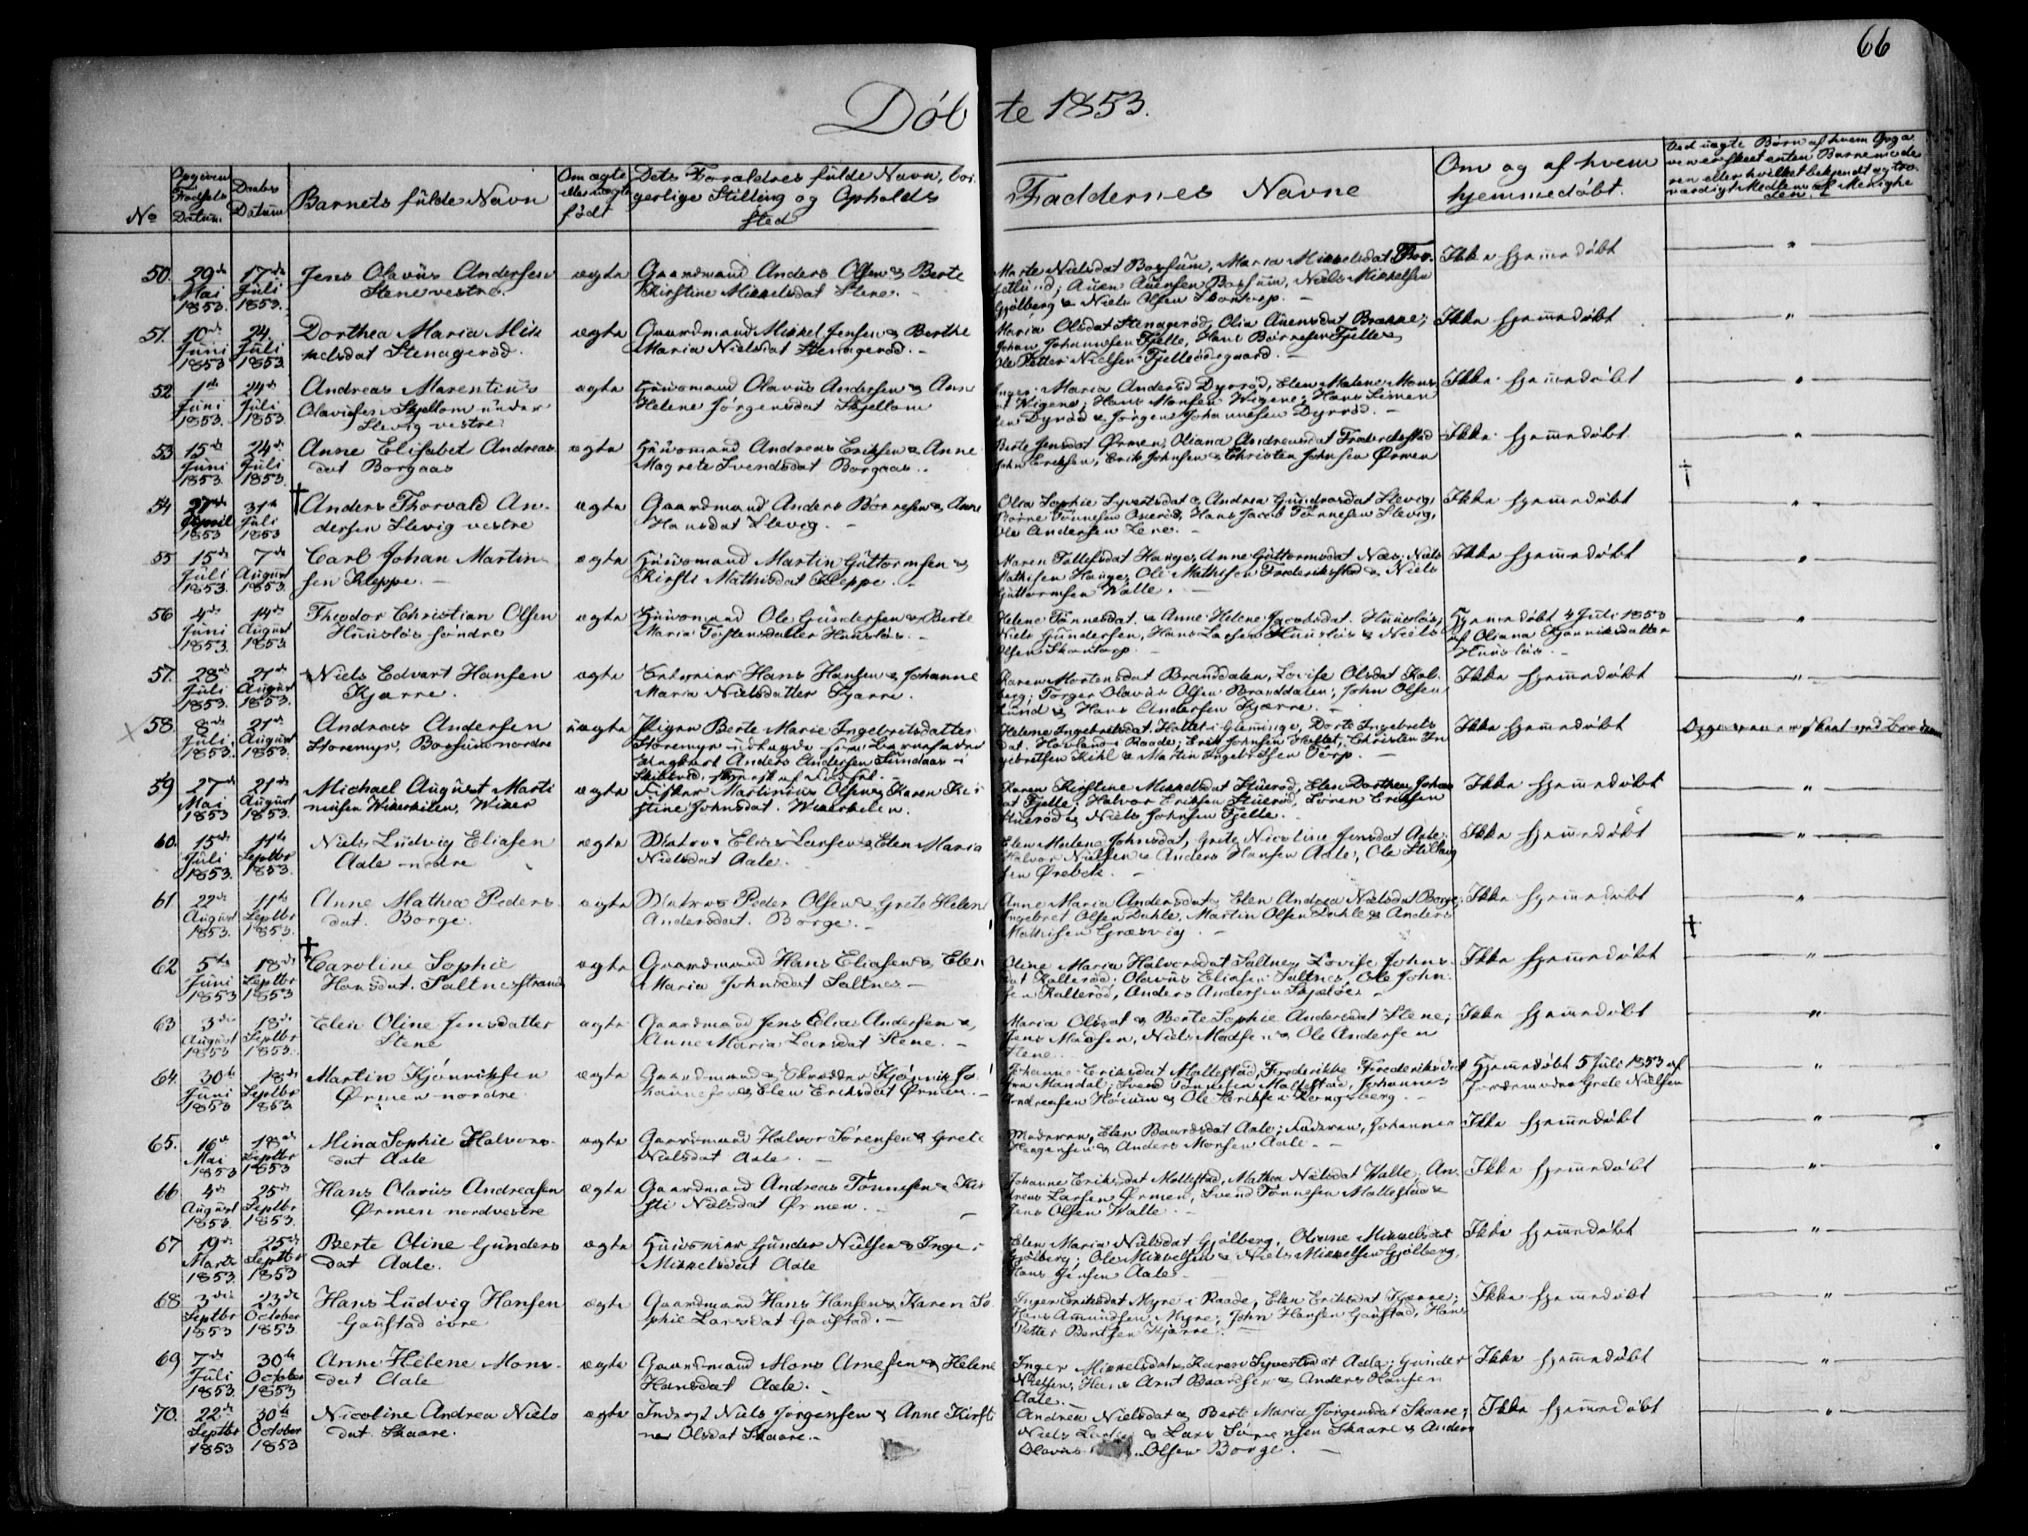 66
Döbte 1853.
No
Opgiven Fødsels Datum
Daabs Datum
Barnets fulde Navn
Om ægte eller uægte født
Dets Forældres fulde Navn, borgerlige Stilling og Opholdssted
Faddernes Navne
Om og af hvem hjemmedøbt.
50. 29de Mai 1853. 17de Juli 1853. Jens Olavus Andersen Stene vestre. ægte Gaardmand Anders Olsen & Berte Kirstine Mikkelsdat Stene. Ikke hjemmedøbt
Niels Mikkelsen
Gjølberg & Niels Olsen
51. 10de Juni 1853 24. Juli 1853. Dorthea Maria Mikkelsdat Stenagerød. ægte Gaardmand Mikkel Jensen & Berthe Maria Nielsdat Stenagerød. Ikke hjemmedøbt
Maria Olsdat Stenagerød, Olia Auensdat Brække;
Johan Johannesen Fjelle, Hans Börresen Fjelle &
Ole Petter Nielsen Fjelleødegaard.
52 1de Juni 1853. 24de Juli 1853. Andreas Marentius Olavisen Skjellom under Slevig vestre ægte Huusmand Olavus Andersen & Anne Helene Jørgensdat Skjellom Ikke hjemmedøbt
53 15de Juni 1853. 24de Juli 1853. Anne Elisabet Andreasdat Borgaas ægte Huusmand Andreas Eriksen & Anne Magrete Svendsdat Borgaas. Ikke hjemmedøbt
Berte Jensdat Ørmen, Oliana Andreasdat Frederikstad
John Eriksen, Erik Johnsen & Christen Johnsen Ørmen
54 27de April 1853 31te Juli 1853 Anders Thorvald Andersen Slevig vestre ægte Gaardmand Anders Börresen & Anne Hansdat Slevig. Ikke hjemmedøbt
Hans Jacob Tønnesen Slevig,
Ole Andersen Lere.
55 15de Juli 1853. 7de August 1853. Carl Johan Martinsen Kleppe. ægte Huusmand Martin Guttormsen & Kirsti Mathisdat Kleppe. Ikke hjemmedøbt
Maren Tollefsdat Hauge, Anne Guttormsdat Næs, Niels
Mathisen Hauge, Ole Mathisen Frederikstad & Niels
Guttormsen Walle.
56 4de Juni 1853. 14de August 1853. Theodor Christian Olsen Huusløs søndre ægte Huusmand Ole Gundersen & Berte Maria Torstensdatter Huusløs. Hjemmedøbt 4 Juli 1853 af Oliana Kjønniksdatter Huusløs.
Helene Tønnesdat. & Anne Helene Jacobsdat. Huusløs;
Niels Gundersen, Hans Larsen Huusløs & Niels
57. 28de Juli 1853. 21de August 1853. Niels Edvart Hansen Kjærre. ægte Hans Hansen & Johanne Maria Nielsdatter Kjærre. Ikke hjemmedøbt
Karen Mortensdat Branddalen, Lovise Olsdat
Torger Olavus Olsen Branddalen, John Olsen
Lund & Hans Andersen Kjærre.
58. 8de Juli 1853. 21de August 1853. Andreas Andersen Storemyr, Borsum nordre uægte Pigen Berte Marie Ingebretsdatter Storemyr udlagde som Barnefader Ungkarl Anders Andersen Sundaas i Ikke hjemmedøbt
59 27de Mai 1853 21de August 1853. Michael August Martinusen Wikerkilen, Wiker ægte Fisker Martinius Olsen & Karen Kirstine Johnsdat. Wikerkilen. Ikke hjemmedøbt
Karen Kirstine Mikkelsdat Stuerød, Elen Dorthea Johnsdat Fjelle, Halvor Eriksen Stuerød, Søren Eriksen
Stuerød & Niels Johnsen Fjelle.
60. 15de Juli 1853. 11te Septbr 1853. Niels Ludvig Eliasen Aale nedre ægte Matros Elias Larsen & Elen Maria Nielsdat Aale. Ikke hjemmedøbt
Elen Malene Johnsdat, Grete Nicoline Jensdat Aale;
Halvor Nielsen & Anders Hansen Aale,
61 22de August 1853. 11te Septbr 1853. Anne Mathea Pedersdat. Borge. ægte Matros Peder Olsen & Grete Helene Andersdat. Borge. Ikke hjemmedøbt
Anne Maria Andersdat & Elen Andrea Nielsdat Borge;
Ingebret Olsen Duhle, Martin Olsen Duhle & Anders
Mathisen Græsvig.
62 5te Juni 1853 18de Septbr 1853 Caroline Sophie Hansdat. Saltnesstrand ægte Gaardmand Hans Eliasen & Elen Maria Johnsdat Saltnes Ikke hjemmedøbt
Oline Maria Halvorsdat Saltnes, Lovise Johnsdat Kallerød, Olavus Eliasen Saltnes, Ole Johnsen Kallerød, Anders Andersen
63 3die August 1853 18de Septbr 1853. Elen Oline Jensdatter Stene ægte Gaardmand Jens Elia Andersen & Anne Maria Larsdat Stene. Ikke hjemmedøbt
Maria Olsdat & Berte Sophie Andersdat Stene;
Jens Madsen, Niels Madsen & Ole Andersen
Stene.
64. 30te Juni 1853 18de Septbr 1853 Martin Kjönniksen Ørmen nordre. ægte Gaardmand & Skrædder Kjønnik Johannesen & Elen Eriksdat Ørmen. Hjemmedøbt 5 Juli 1853 af Jordemoder Grete Nielsen
Johanne Eriksdat Mollestad, Frederikke Frederiksdat
Svend Tønnesen Mollestad, Johannes
Andreasen & Ole Eriksen Kongsberg.
65. 16de Mai 1853 18de Septbr 1853 Mina Sophie Halvorsdat Aale ægte Gaardmand Halvor Sørensen & Grete Nielsdat Aale. Ikke hjemmedøbt
Moderen, Elen Baardsdat Aale; Faderen, Johannes
Haagensen & Anders Monsen Aale.
66 4de August 1853. 25de Septbr 1853. Hans Olavus Andreasen Ørmen nordvestre ægte Gaardmand Andreas Tønnesen & Kirsti Nielsdat Ørmen. Ikke hjemmedøbt
Johanne Eriksdat Mollestad, Mathea Nielsdat Walle, Andreas Larsen Ørmen, Svend Tønnesen Mollestad &
Jens Olsen Walle.
67 19de Marts 1853. 25de Septbr 1853 Berte Oline Gundersdat Aale. ægte Gunder Nielsen & Inger Mikkelsdat Aale Ikke hjemmedøbt
Elen Maria Nielsdat Gjølberg, Olianne Mikkelsdat
Gjølberg, Ole Mikkelsen & Niels Mikkelsen Gjølberg,
Hans Jensen Aale.
68 3die Septbr 1853 23de October 1853 Hans Ludvig Hansen Gaustad övre ægte Gaardmand Hans Hansen & Karen Sophie Larsdat Gaustad. Ikke hjemmedøbt
Inger Eriksdat Myre i Raade, Elen Eriksdat Kjærre;
Hans Amundsen Myre, John Hansen Gaustad, Hans
Petter Bentsen Kjærre.
69 7de Juli 1853. 30te October 1853 Anne Helene Monsdat Aale ægte Gaardmand Mons Arnesen & Helene Hansdat Aale. Ikke hjemmedøbt
Inger Mikkelsdat & Karen Syvertsdat Aale; Gunder
Nielsen, Hans Arnt Baardsen & Anders Hansen
Aale.
70. 22de Septbr 1853 30te October 1853 Nicoline Andrea Nielsdat. Skaare. ægte Niels Jørgensen & Anne Kirstine Olsdat Skaare. Ikke hjemmedøbt
Andrea Nielsdat & Berte Maria Jørgensdat Skaare;
Niels & Lars Sørensen Skaare & Anders
Olavus Olsen Borge.